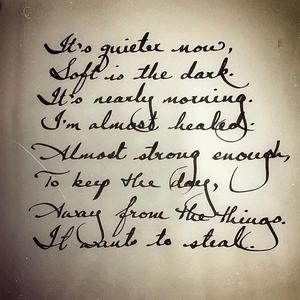 It's quieter now,
Soft is the dark.
It's nearly morning.
I'm almost healed.
Almost strong enough,
To keep the day,
Away from the things.
It wants to steal.